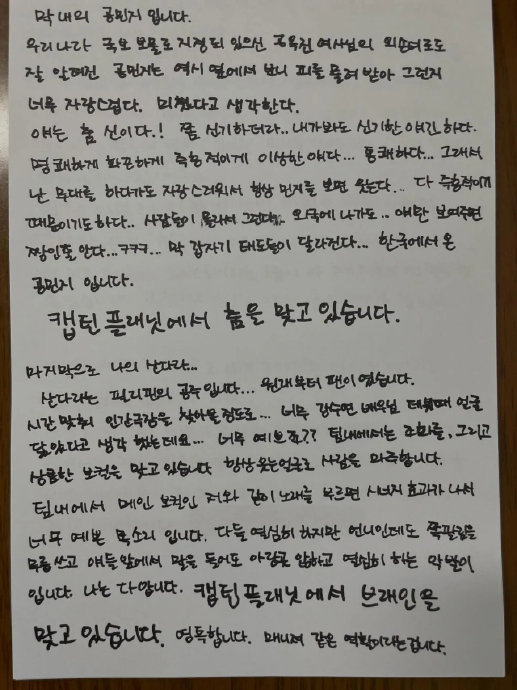 막내의 공민지 입니다.
우리나라 국보 보물로 지정되 있으신 공옥진 여사님의 외손녀로도
잘 알려진 공민지는 역시 옆에서 보니 피를 물려 받아 그런지
너무 자랑스럽다. 미쳤다고 생각한다.
얘는 춤 신이다.! 쫌 신기하더라.. 내가봐도 신기한 얘긴 하다.
명쾌하게 화끈하게 즉흥적이게 이상한 얘다... 통쾌하다... 그래서
난 무대를 하다가도 자랑스러워서 항상 민지를 보면 웃는다... 다 즉흥적이기
때문이기도 하다.. 사람들이 몰라서 그런다.. 외국에 나가도.. 얘만 보여주면
짱인줄 안다...ㅋㅋㅋ... 막 갑자기 태도들이 달라진다... 한국에서 온
공민지 입니다.
캡틴 플래닛에서 춤을 맞고 있습니다.
마지막으로 나의 산다라...
산다라는 필리핀의 공주 입니다... 원래부터 팬이였습니다.
시간 맞춰 인간극장을 찾아볼정도로... 너무 강수연 배우님 데뷔때 얼굴
닮았다고 생각 했는데요... 너무 예쁘죠?? 팀내에서는 조화를, 그리고
상큼한 보컬을 맞고 있습니다 항상 웃는얼굴로 사람을 마주합니다.
팀내에서 메인 보컬인 저와 같이 노래를 부르면 시너지 효과가 나서
너무 예쁜 목소리 입니다. 다들 열심히 하지만 언니인데도 쪽팔림을
무릎쓰고 얘들앞에서 말을 들어도 아랑곳 않하고 열심히 하는 악발이
입니다. 나는 다 압니다. 캡틴플래닛에서 브레인을
맞고 있습니다. 영특합니다. 매니져 같은 역할이라는겁니다.